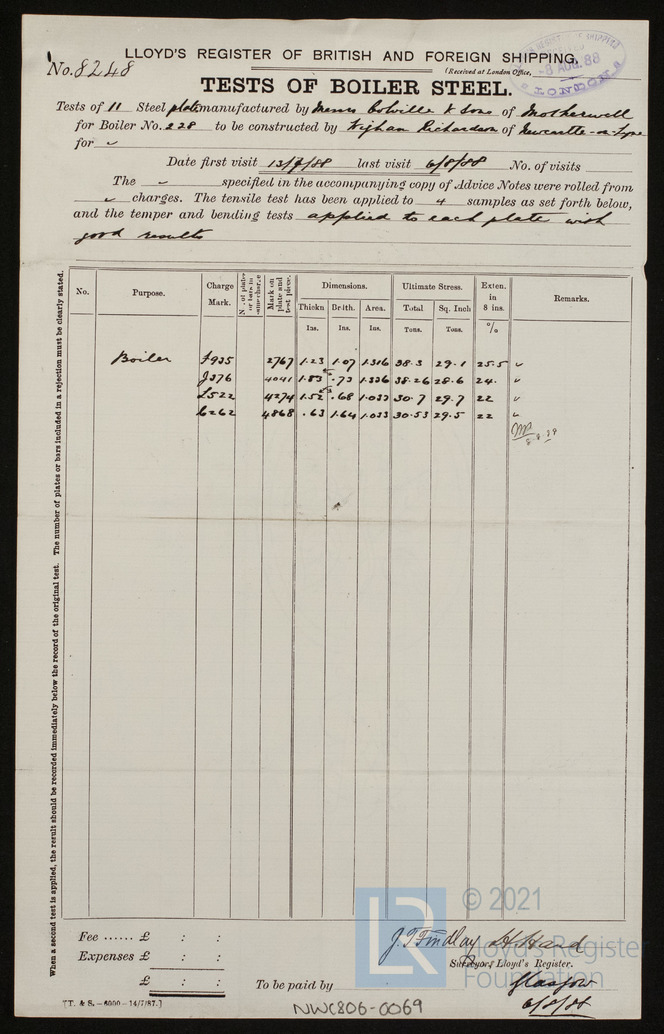 LLOYD'S REGISTER OF BRITISH AND FOREIGN SHIPPING.
No. 8248
(Received at London Office,
8 AUG. 88
LONDON
TESTS OF BOILER STEEL.
Tests of 11 Steel plates manufactured by Messrs Colville & Sons of Motherwell
for Boiler No. 228 to be constructed by Wigham Richardson of Newcastle-o-Tyne
for "
Date first visit 13/7/88 last visit 6/8/88 No. of visits
The " specified in the accompanying copy of Advice Notes were rolled from
" charges. The tensile test has been applied to 4 samples as set forth below,
and the temper and bending tests applied to each plate with
good results
When a second test is applied, the result should be recorded immediately below the record of the original test. The number of plates or bars included in a rejection must be clearly stated.
No. Purpose. Charge Mark. No. of plates or bars in same charge Mark on plate and test piece. Dimensions. Ultimate Stress. Exten. in 8 ins. Remarks.
Thickn Br'th. Area. Total Sq. Inch
Ins. Ins. Ins. Tons. Tons. %
Boiler 7935 2767 1.23 1.07 1.316 38.3 29.1 25.5 "
J376 4041 1.83 .73 1.336 38.26 28.6 24. "
L522 4274 1.52 .68 1.033 30.7 29.7 22 "
6262 4868 .63 1.64 1.033 30.53 29.5 22 "
8.8.89
Fee ...... £ : :
Expenses £ : :
£ : :
J. T. Findlay
Surveyor, Lloyd's Register.
To be paid by Glasgow
6/8/88
[T. & S.—6000—14/7/87.]
NWC806-0069
LR
© 2021
Lloyd's Register
Foundation